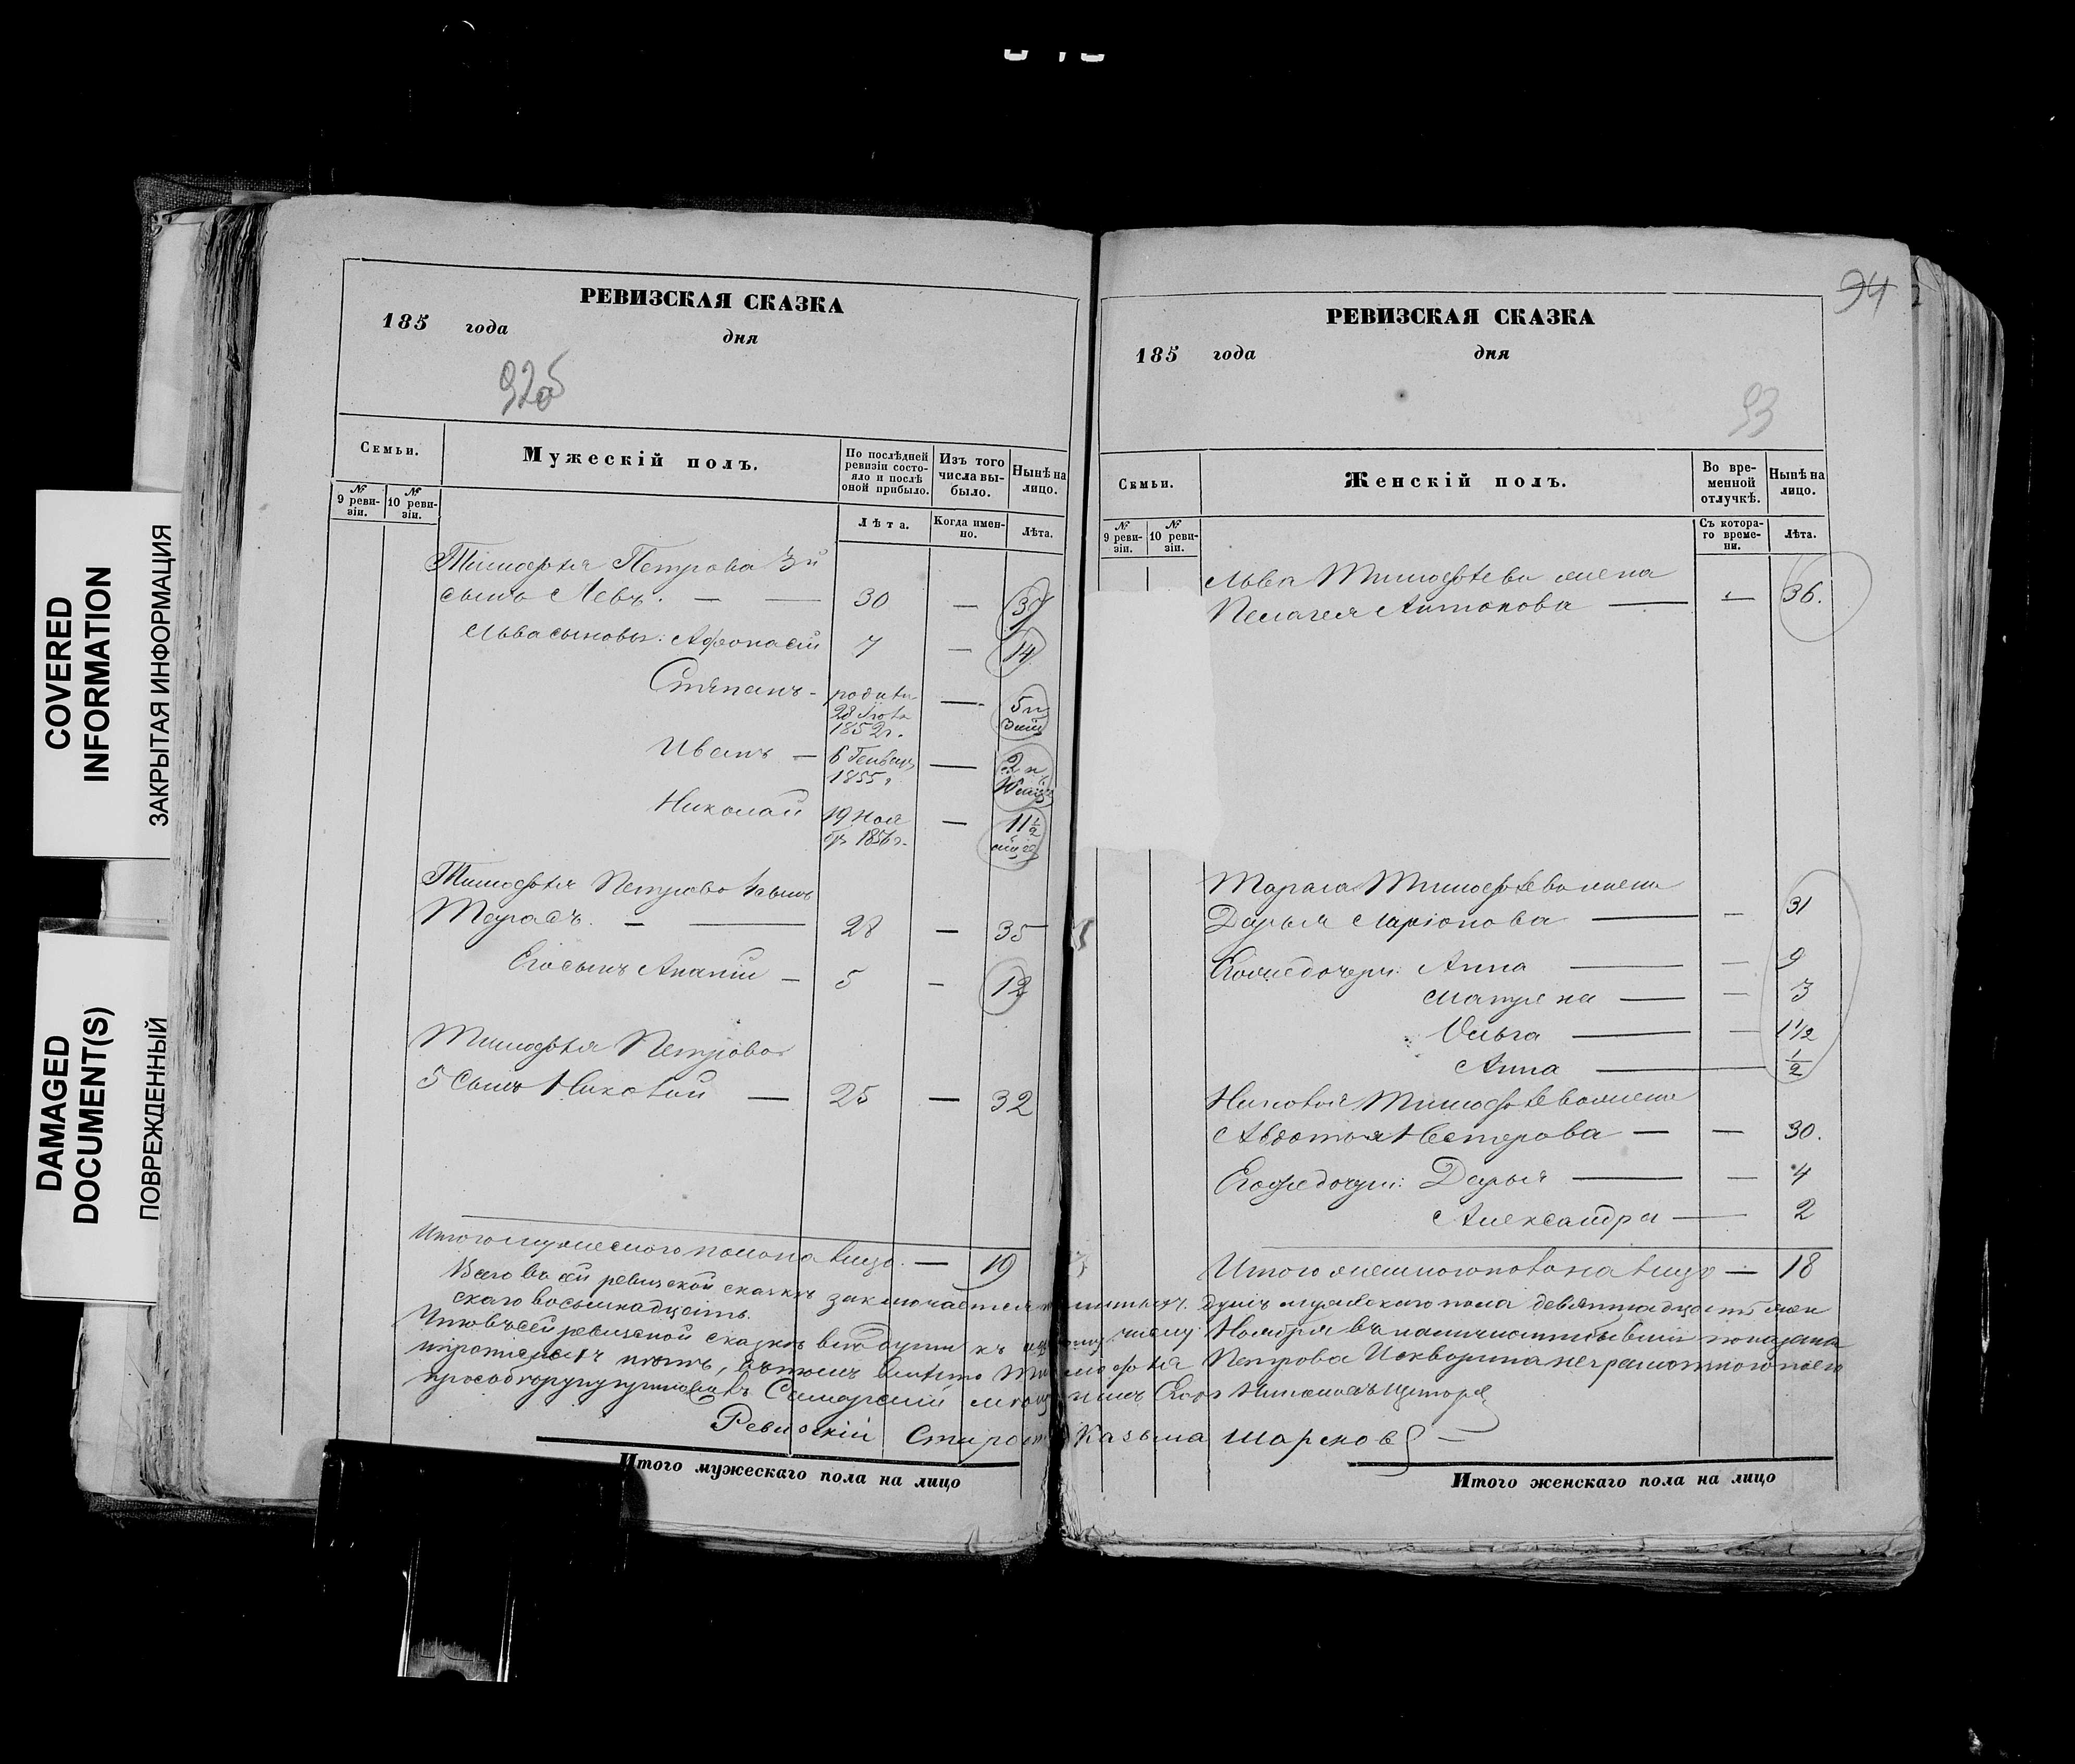 COVERED
INFORMATION
ЗАКРЫТАЯ ИНФОРМАЦИЯ
DAMAGED
DOCUMENT(S)
ПОВРЕЖДЕННЫЙ
РЕВИЗСКАЯ СКАЗКА
185 года дня
92об
Семьи.
Мужескій полъ.
По послѣдней ревизіи состояло и послѣ оной прибыло.
Изъ того числа выбыло.
Нынѣ на лицо.
№ 9 ревизіи.
№ 10 ревизіи.
Лѣта.
Когда именно.
Лѣта.
Тимофѣя Петрова 3й
сынъ Левъ. — — 30 — 37
Льва сыновья: Афонасій 7 — 14
Степанъ - родился — 5 и
28
1852г.
Иванъ — 6 Генваря — 2 и
1855г.
Николай 19 Ноя — 11 1/2
бр 1856г.
Тимофѣя Петрова 4 сынъ
Тарасъ. — — 28 — 35
Его сынъ Ананій — 5 — 12
Тимофѣя Петрова
5 сынъ Николай — 25 — 32
Итого мужескаго пола на лицо. — 19
РЕВИЗСКАЯ СКАЗКА
185 года дня
94
93
Семьи.
Женскій полъ.
Во временной отлучкѣ.
Нынѣ на лицо.
№ 9 ревизіи.
№ 10 ревизіи.
Съ котораго времени.
Лѣта.
Льва Тимофѣева жена
Пелагея Антонова — — 36.
Тараса Тимофѣева жена
Дарья Ларіонова — — 31
Его же дочери: Анна — — 9
Матрена — — 3
Ольга — — 1 1/2
Анна — 1/2
Николая Тимофѣева жена
Авдотья Нестерова — — 30.
Его же дочери: Дарья — — 4
Александра — 2
Итого женскаго пола на лицо — 18
Всего въ сей ревизской сказкѣ заключается душъ мужескаго пола девятнадцать жен
скаго восьмнадцать.
Что въ сей ревизской сказкѣ всѣ души къ числу Ноября въ наличности бывшіе показаны
Петрова неграмотнаго по его
Самарскій
Ревизскій Староста Казьма Шарковъ
Итого мужескаго пола на лицо
Итого женскаго пола на лицо